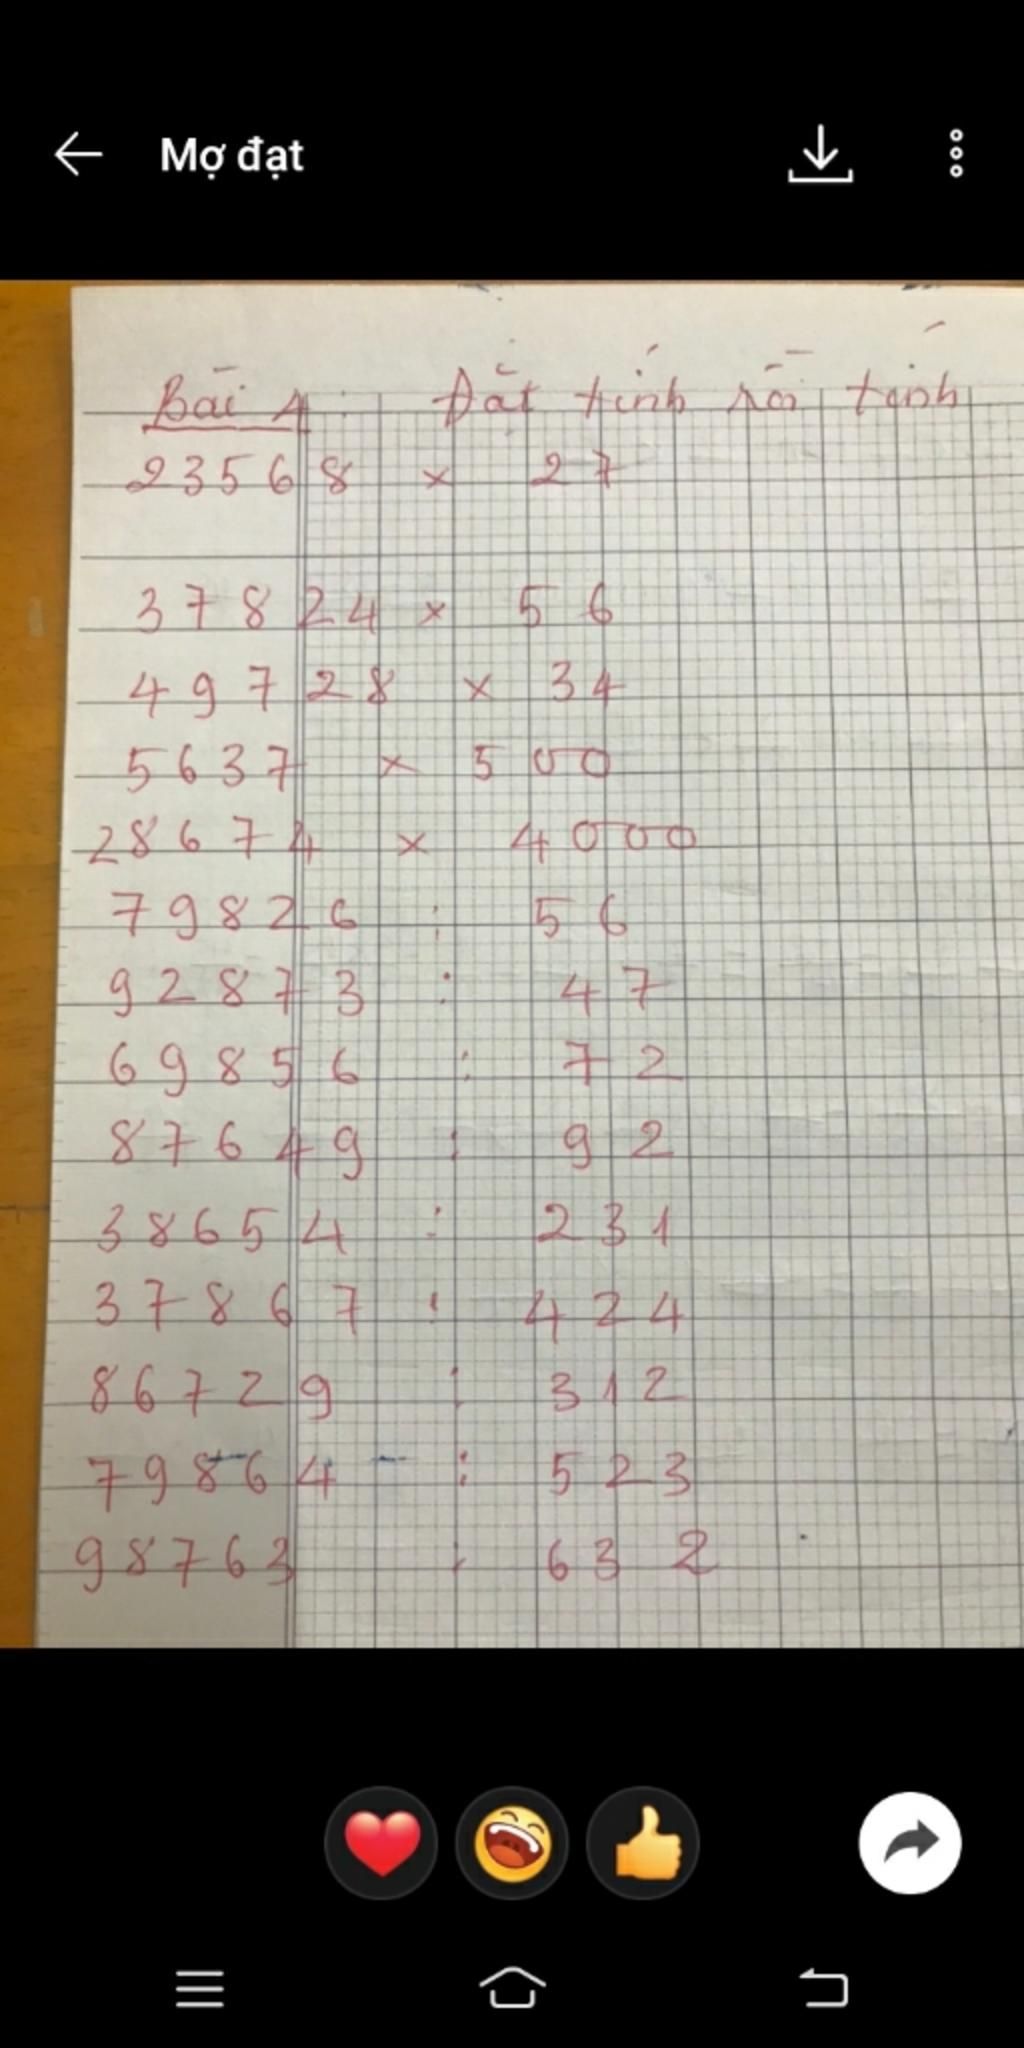 Mợ đạt
Bài 4: Đặt tính rồi tính
23568 × 27
37824 × 56
49728 × 34
5637 × 500
28674 × 4000
79826 : 56
92873 : 47
69856 : 72
87649 : 92
38654 : 231
37867 : 424
86729 : 312
79864 : 523
98763 : 632